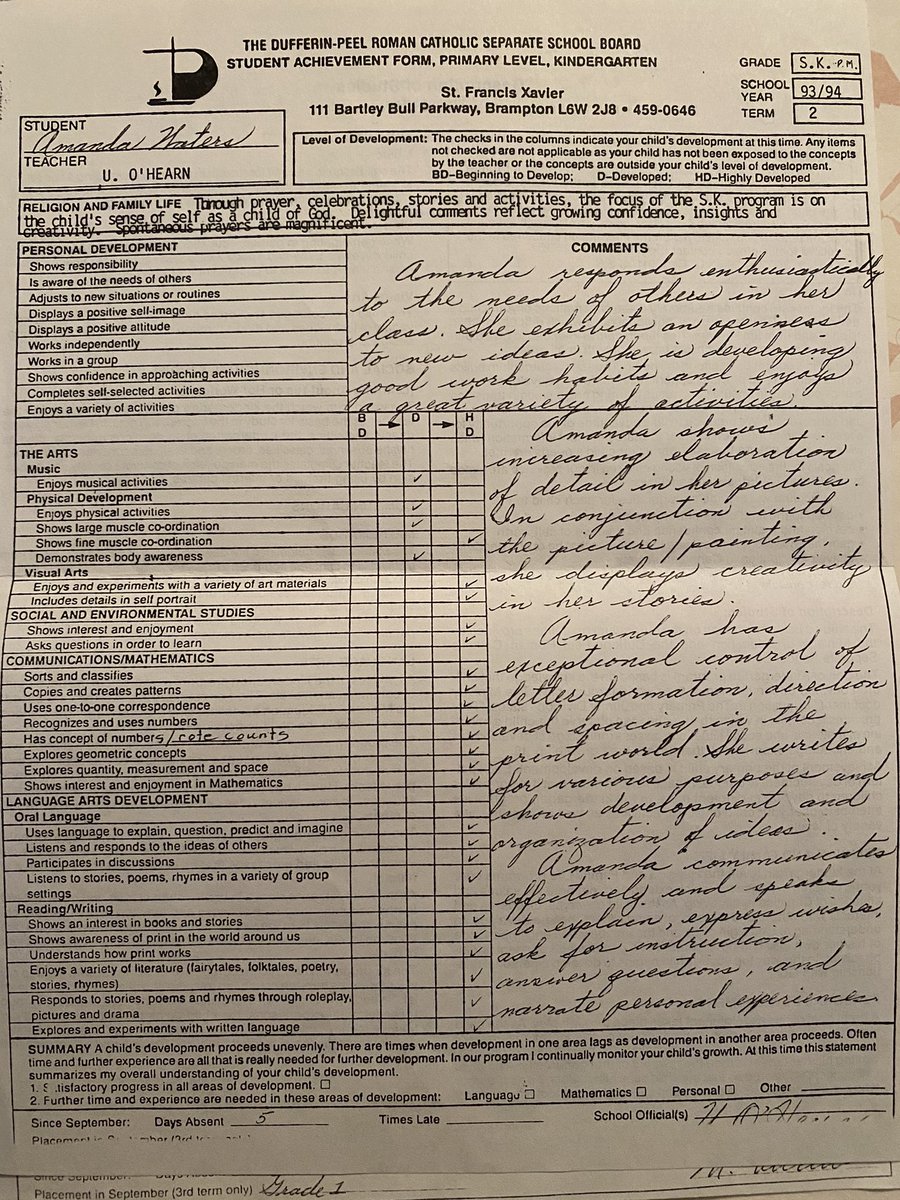 THE DUFFERIN-PEEL ROMAN CATHOLIC SEPARATE SCHOOL BOARD
STUDENT ACHIEVEMENT FORM, PRIMARY LEVEL, KINDERGARTEN
GRADE S.K.-P.M.
St. Francis Xavier
SCHOOL YEAR 93/94
111 Bartley Bull Parkway, Brampton L6W 2J8 • 459-0646
TERM 2
STUDENT
Amanda Waters
TEACHER
U. O'HEARN
Level of Development: The checks in the columns indicate your child's development at this time. Any items
not checked are not applicable as your child has not been exposed to the concepts
by the teacher or the concepts are outside your child's level of development.
BD–Beginning to Develop; D–Developed; HD–Highly Developed
RELIGION AND FAMILY LIFE Through prayer, celebrations, stories and activities, the focus of the S.K. program is on
the child's sense of self as a child of God. Delightful comments reflect growing confidence, insights and
creativity. Spontaneous prayers are magnificent.
PERSONAL DEVELOPMENT
Shows responsibility
Is aware of the needs of others
Adjusts to new situations or routines
Displays a positive self-image
Displays a positive attitude
Works independently
Works in a group
Shows confidence in approaching activities
Completes self-selected activities
Enjoys a variety of activities
COMMENTS
Amanda responds enthusiastically
to the needs of others in her
class. She exhibits an openness
to new ideas. She is developing
good work habits and enjoys
a great variety of activities.
B D → D → H D
THE ARTS
Music
Enjoys musical activities ✓
Physical Development
Enjoys physical activities ✓
Shows large muscle co-ordination ✓
Shows fine muscle co-ordination ✓
Demonstrates body awareness ✓
Visual Arts
Enjoys and experiments with a variety of art materials ✓
Includes details in self portrait ✓
SOCIAL AND ENVIRONMENTAL STUDIES
Shows interest and enjoyment ✓
Asks questions in order to learn ✓
COMMUNICATIONS/MATHEMATICS
Sorts and classifies ✓
Copies and creates patterns ✓
Uses one-to-one correspondence ✓
Recognizes and uses numbers ✓
Has concept of numbers/rote counts ✓
Explores geometric concepts ✓
Explores quantity, measurement and space ✓
Shows interest and enjoyment in Mathematics ✓
LANGUAGE ARTS DEVELOPMENT
Oral Language
Uses language to explain, question, predict and imagine ✓
Listens and responds to the ideas of others ✓
Participates in discussions ✓
Listens to stories, poems, rhymes in a variety of group ✓
settings
Reading/Writing
Shows an interest in books and stories ✓
Shows awareness of print in the world around us ✓
Understands how print works ✓
Enjoys a variety of literature (fairytales, folktales, poetry, ✓
stories, rhymes)
Responds to stories, poems and rhymes through roleplay, ✓
pictures and drama
Explores and experiments with written language ✓
Amanda shows
increasing elaboration
of detail in her pictures.
In conjunction with
the picture/painting,
she displays creativity
in her stories.
Amanda has
exceptional control of
letter formation, direction
and spacing in the
print world. She writes
for various purposes and
shows development and
organization of ideas.
Amanda communicates
effectively and speaks
to explain, express wishes,
ask for instruction,
answer questions, and
narrate personal experiences.
SUMMARY A child's development proceeds unevenly. There are times when development in one area lags as development in another area proceeds. Often
time and further experience are all that is really needed for further development. In our program I continually monitor your child's growth. At this time this statement
summarizes my overall understanding of your child's development.
1. S tisfactory progress in all areas of development. ☐
2. Further time and experience are needed in these areas of development: Language ☐ Mathematics ☐ Personal ☐ Other
Since September: Days Absent 5 Times Late School Official(s)
Placement in September (3rd term only) Grade 1